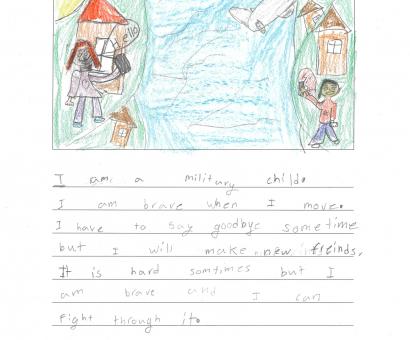 ello
I am a military child.
I am brave when I move.
I have to say goodbye sometime
but I will make new freinds.
It is hard somtimes but I
am brave and I can
fight through it.